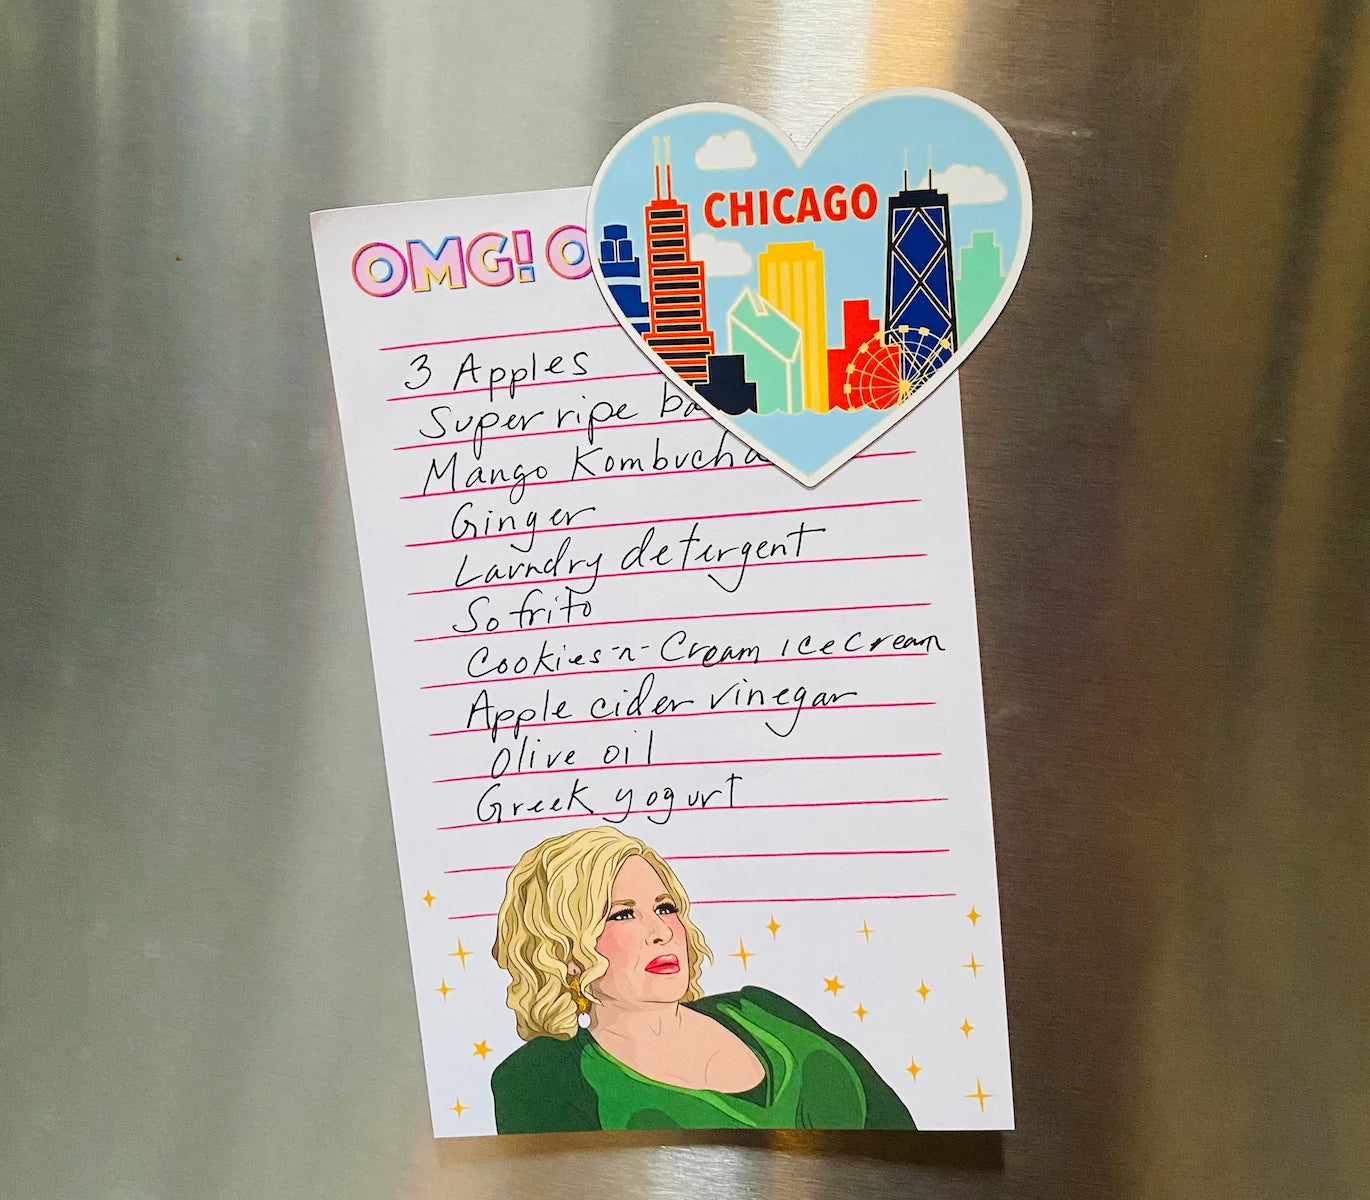 OMG! O
CHICAGO
3 Apples
Super ripe ba
Mango Kombucha
Ginger
Laundry detergent
Sofrito
Cookies-n-Cream ice cream
Apple cider vinegar
Olive oil
Greek yogurt